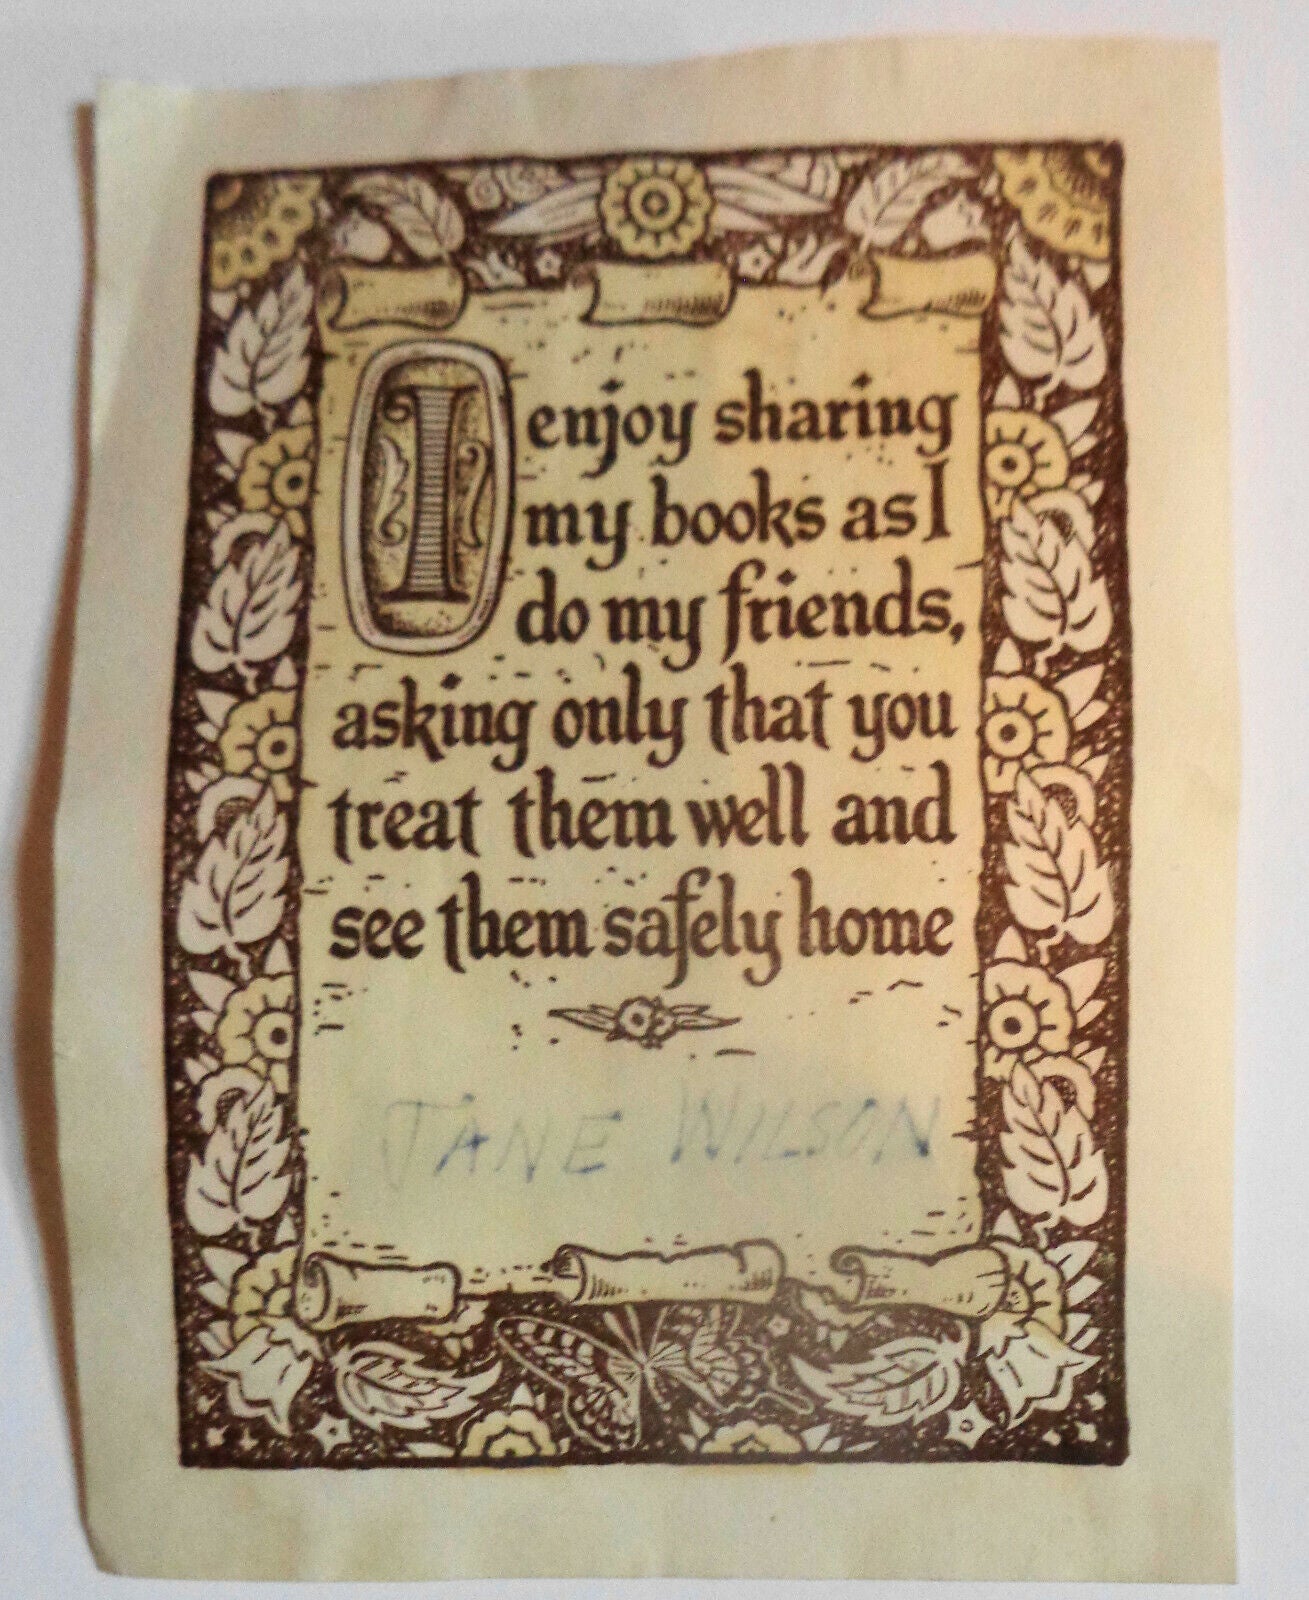 I enjoy sharing
my books as I
do my friends,
asking only that you
treat them well and
see them safely home
JANE WILSON